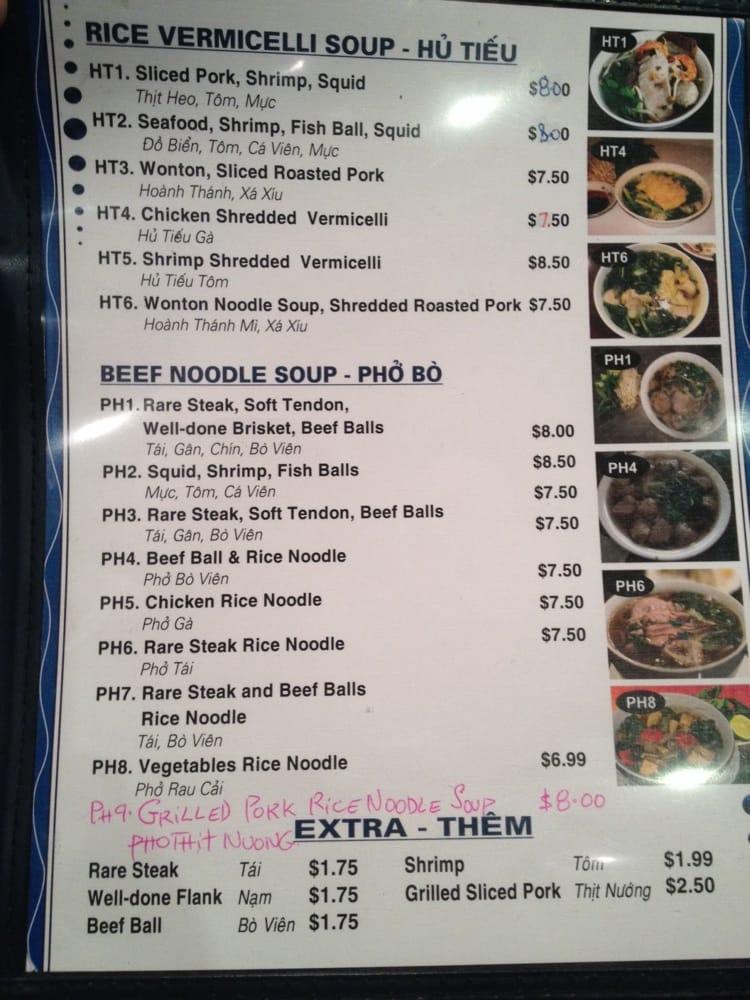 RICE VERMICELLI SOUP - HỦ TIẾU
HT1. Sliced Pork, Shrimp, Squid $8.00
Thịt Heo, Tôm, Mực
HT2. Seafood, Shrimp, Fish Ball, Squid $8.00
Đồ Biển, Tôm, Cá Viên, Mực
HT3. Wonton, Sliced Roasted Pork $7.50
Hoành Thánh, Xá Xíu
HT4. Chicken Shredded Vermicelli $7.50
Hủ Tiếu Gà
HT5. Shrimp Shredded Vermicelli $8.50
Hủ Tiếu Tôm
HT6. Wonton Noodle Soup, Shredded Roasted Pork $7.50
Hoành Thánh Mì, Xá Xíu
BEEF NOODLE SOUP - PHỞ BÒ
PH1. Rare Steak, Soft Tendon,
Well-done Brisket, Beef Balls $8.00
Tái, Gân, Chín, Bò Viên
PH2. Squid, Shrimp, Fish Balls $8.50
Mực, Tôm, Cá Viên
PH3. Rare Steak, Soft Tendon, Beef Balls $7.50
Tái, Gân, Bò Viên
PH4. Beef Ball & Rice Noodle $7.50
Phở Bò Viên
PH5. Chicken Rice Noodle $7.50
Phở Gà
PH6. Rare Steak Rice Noodle $7.50
Phở Tái
PH7. Rare Steak and Beef Balls $7.50
Rice Noodle
Tái, Bò Viên
PH8. Vegetables Rice Noodle $6.99
Phở Rau Cải
PH9. GRILLED PORK RICE NOODLE SOUP $8.00
PHO THịT NUONG
EXTRA - THÊM
Rare Steak Tái $1.75
Well-done Flank Nạm $1.75
Beef Ball Bò Viên $1.75
Shrimp Tôm $1.99
Grilled Sliced Pork Thịt Nướng $2.50
HT1
HT4
HT6
PH1
PH4
PH6
PH8